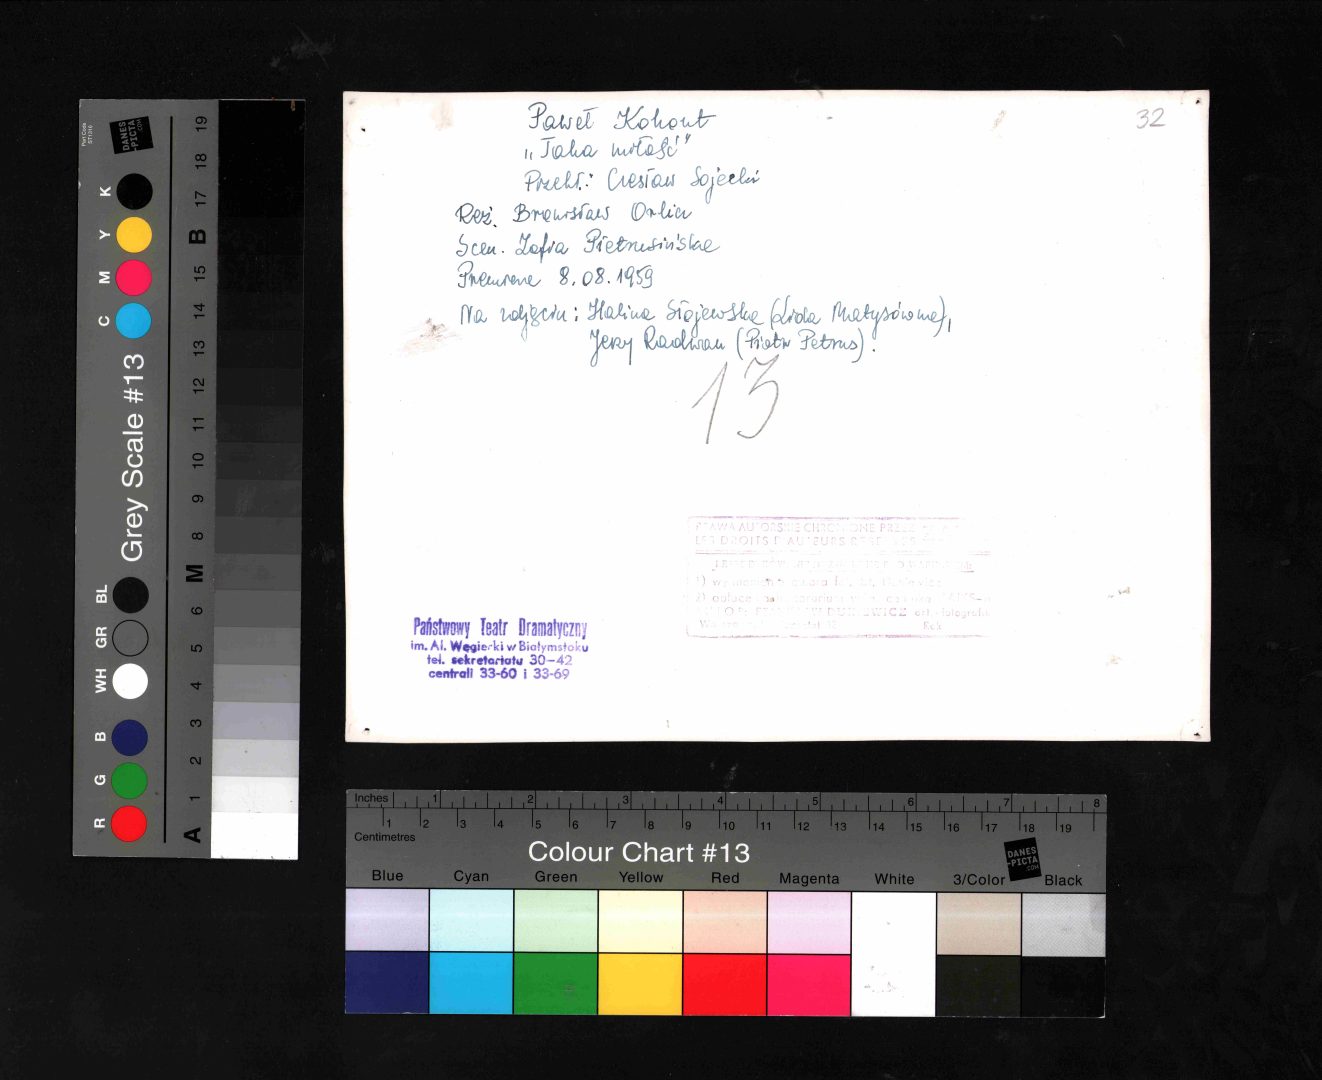 Paweł Kohout
32
„Taka miłość"
Przekł.: Czesław Sojecki
Reż. Bronisław Orlicz
Scen. Zofia Pietrusińska
Premiera 8.08.1959
Na zdjęciu: Halina Słojewska (Lida Matysówna),
Jerzy Radwan (Piotr Petrus).
13
PRAWA AUTORSKIE CHRONIONE PRZEZ
LES DROITS D'AUTEURS
1)
2)
Państwowy Teatr Dramatyczny
im. Al. Węgierki w Białymstoku
tel. sekretariatu 30-42
centrali 33-60 i 33-69
Part Code
ST1316
DANES
-PICTA
.COM
Grey Scale #13
K
Y
M
C
BL
GR
WH
B
G
R
19
18
17
B
15
14
13
12
11
10
9
8
M
6
5
4
3
2
1
A
Inches 1 2 3 4 5 6 7 8
Centimetres 1 2 3 4 5 6 7 8 9 10 11 12 13 14 15 16 17 18 19
Colour Chart #13
DANES
-PICTA
.COM
Blue Cyan Green Yellow Red Magenta White 3/Color Black